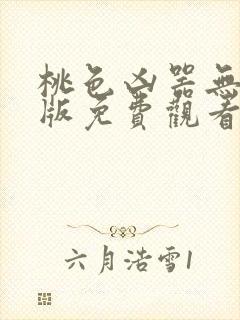 桃色凶器無
版免費觀看
六月浩雪1